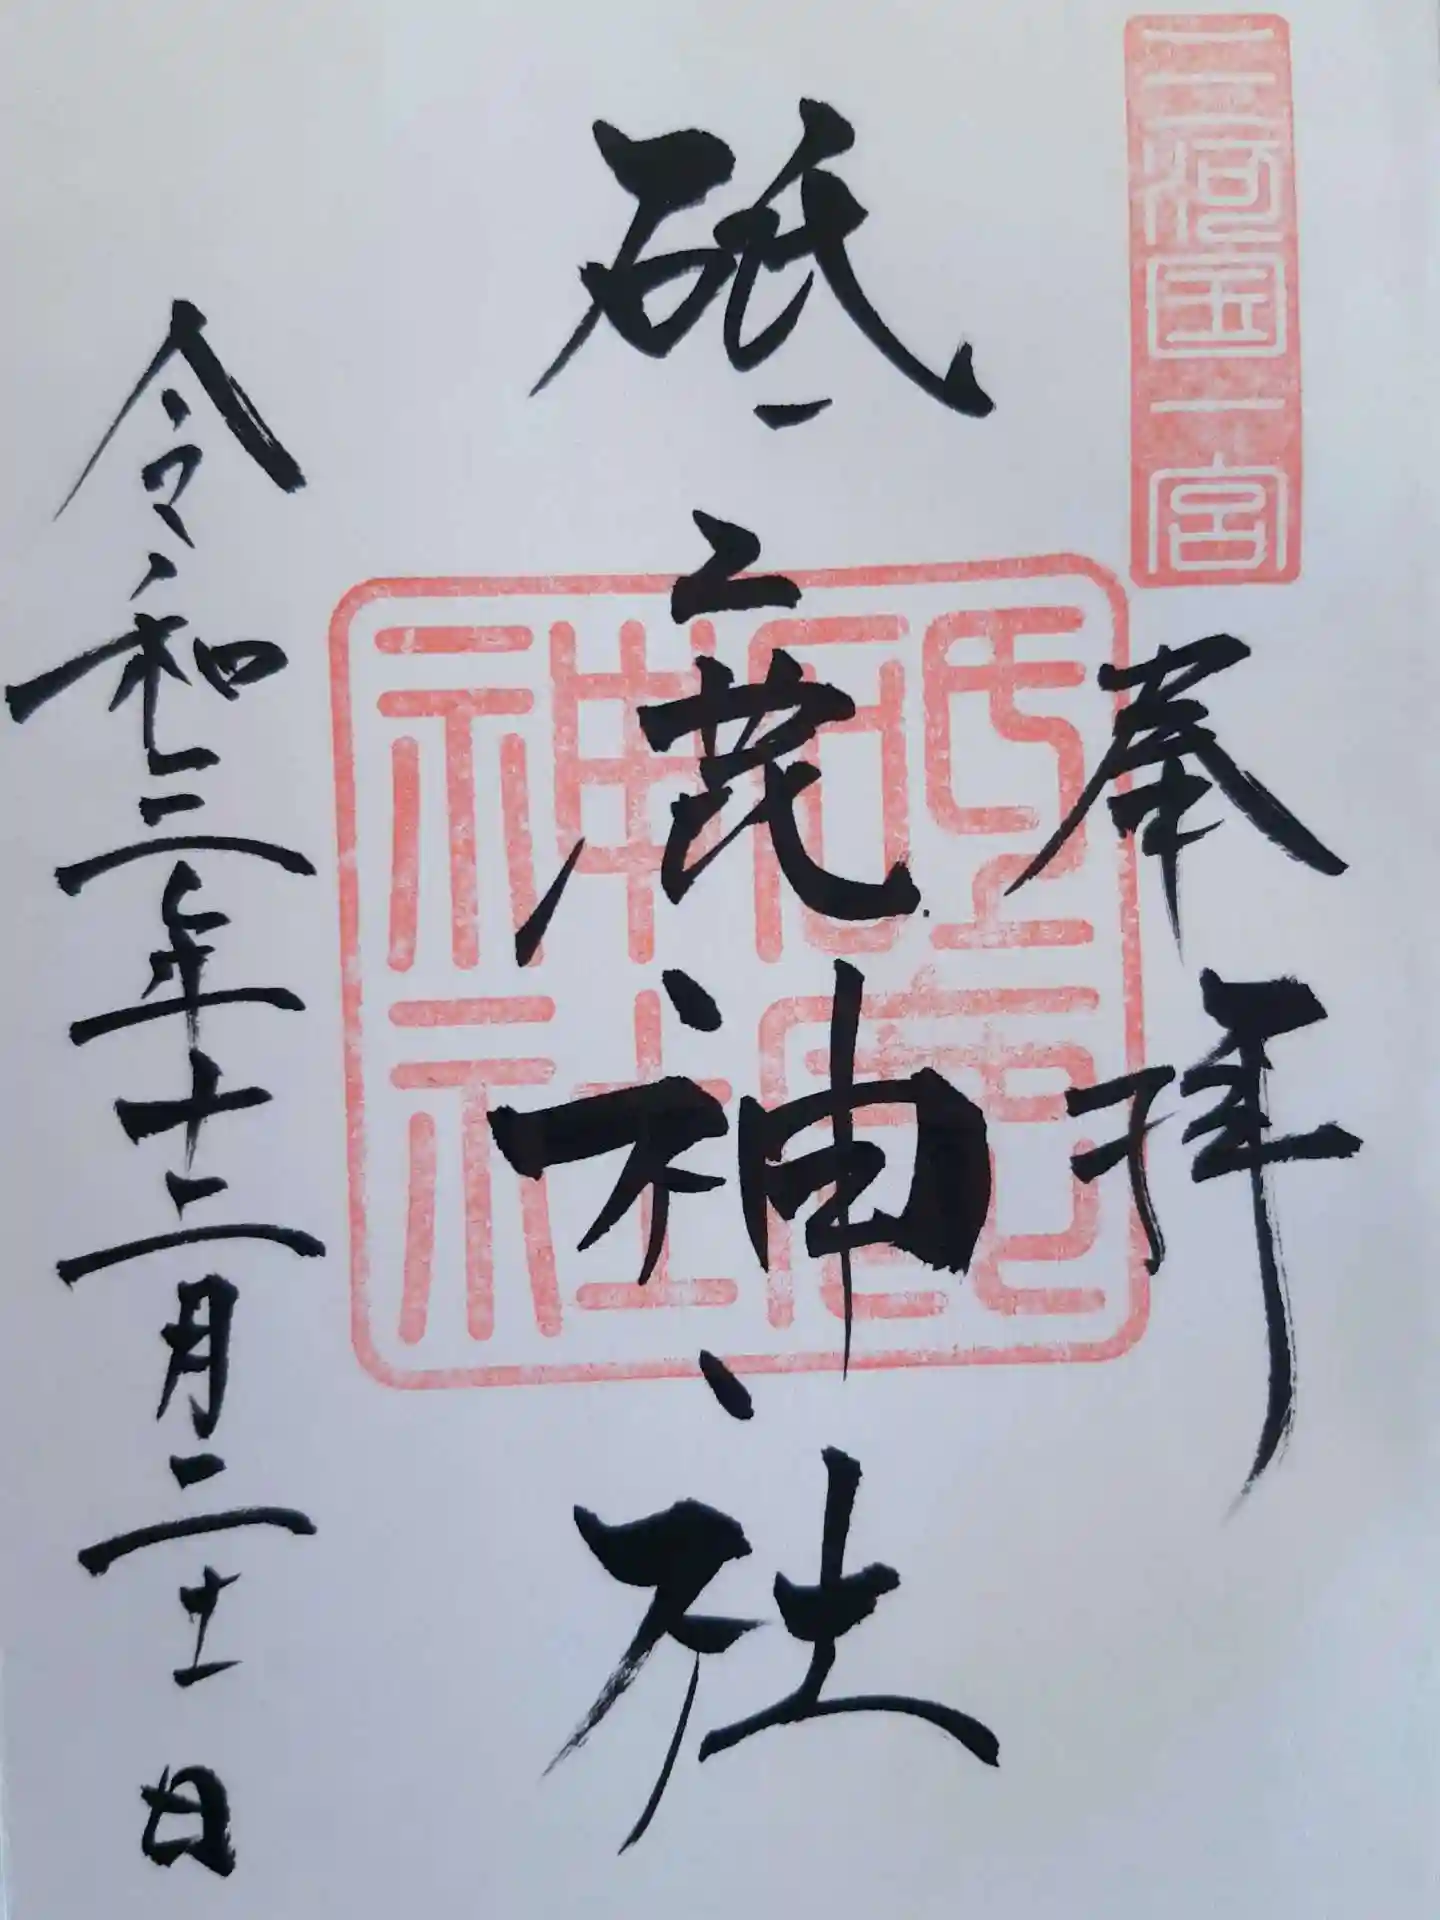 三河国一宮
奉拝
砥鹿神社
砥鹿
神社
令和三年十二月二十一日